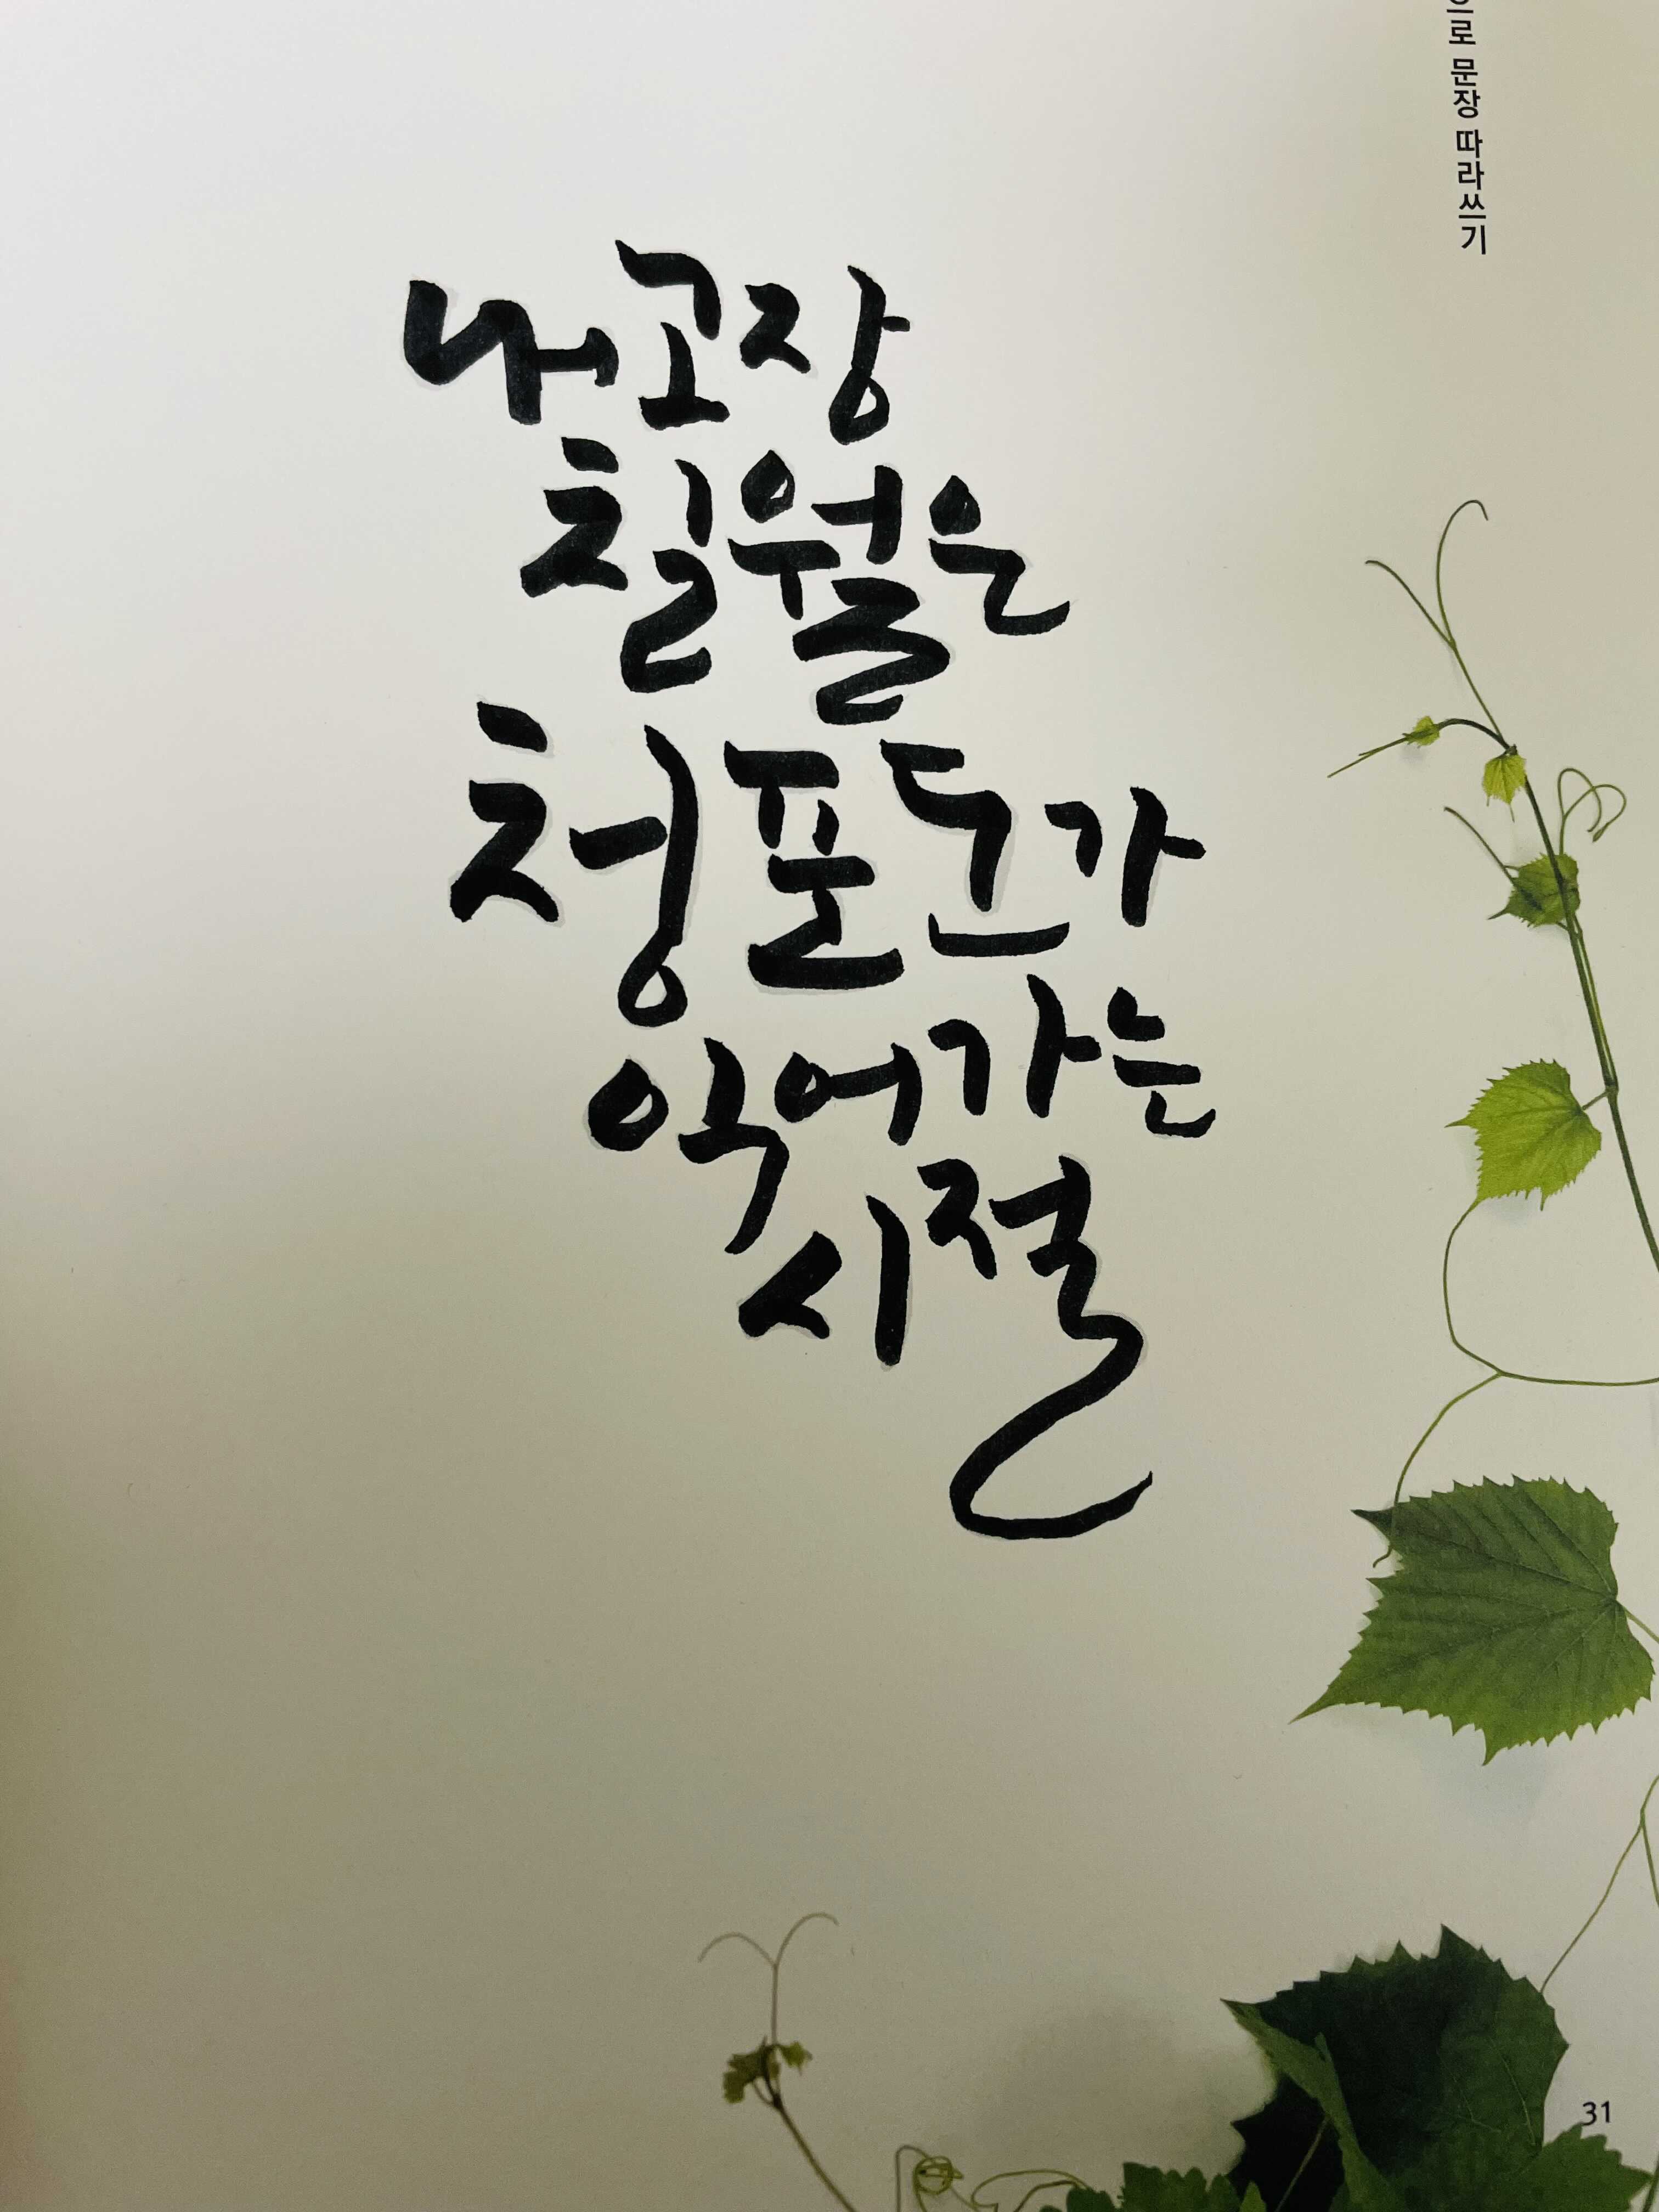 으로 문장 따라쓰기
내 고장
칠월은
청포도가
익어가는
시절
31